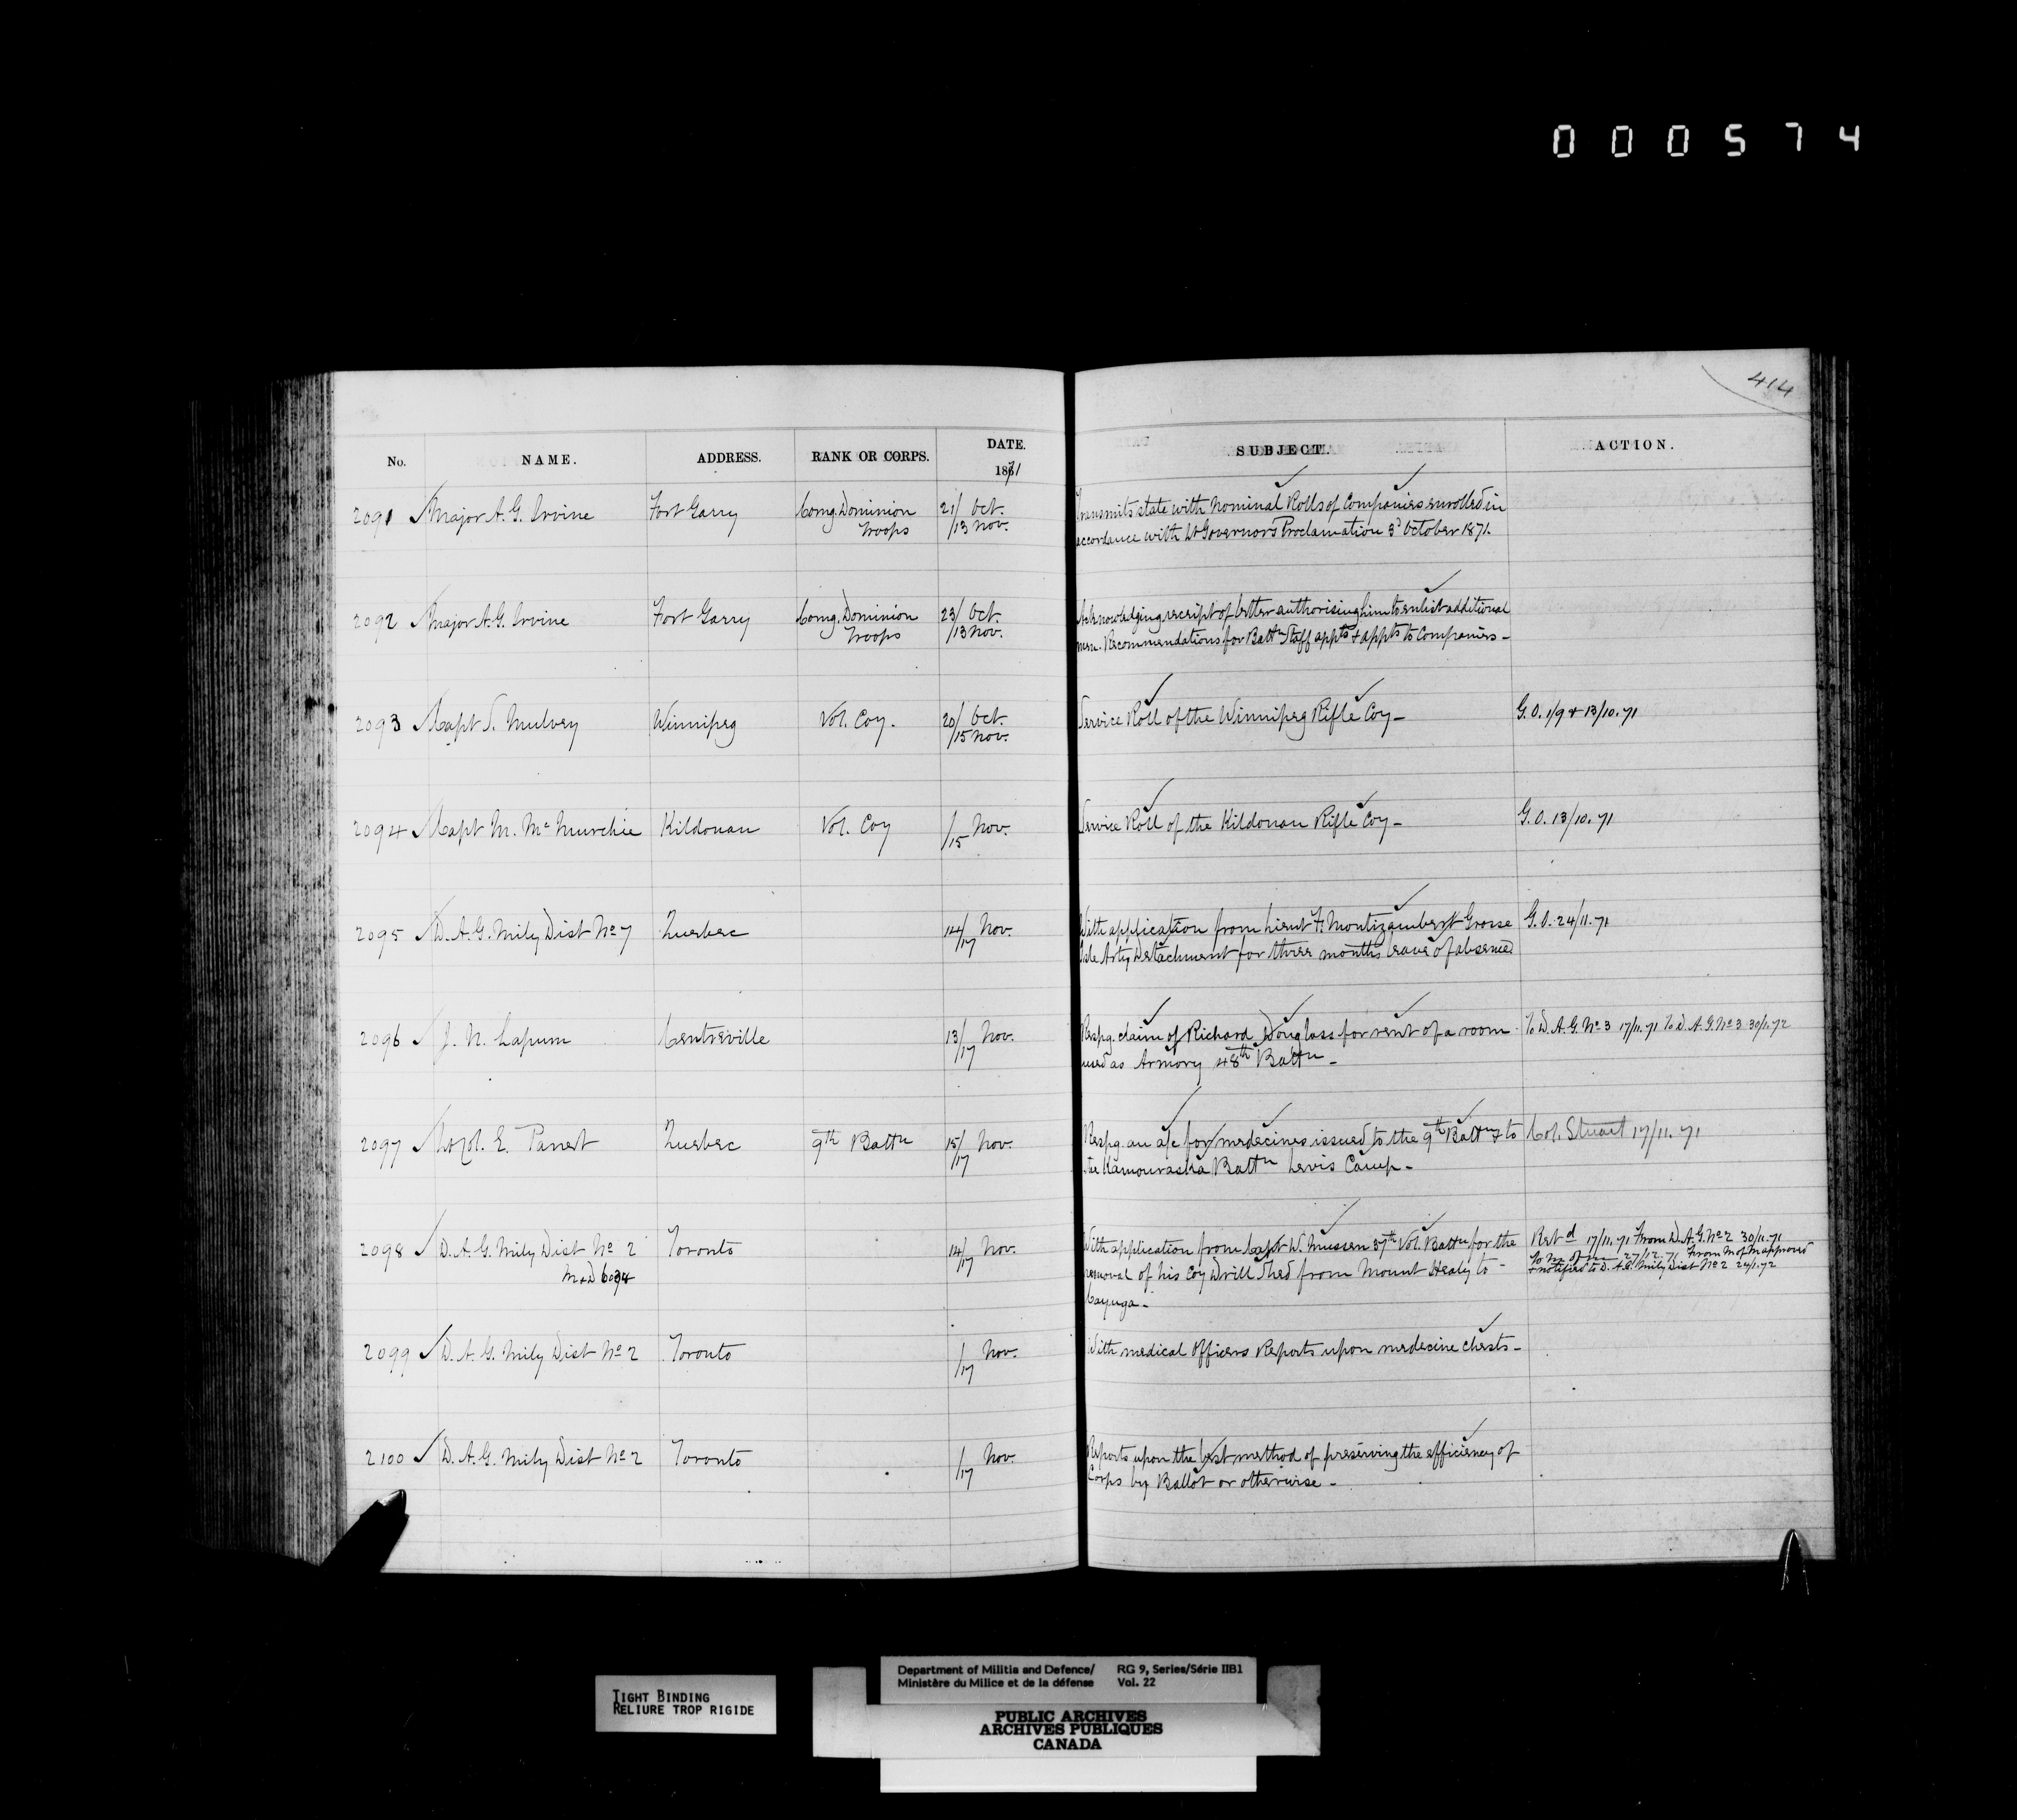 000574
414
No. NAME. ADDRESS. RANK OR CORPS. DATE. 1871 SUBJECT. ACTION.
2091 Major A. G. Irvine Fort Garry Comg. Dominion Troops 21/13 Oct. Nov. Transmits state with Nominal Rolls of Companies enrolled in
accordance with Lt Governors Proclamation 3d October 1871.
2092 Major A. G. Irvine Fort Garry Comg. Dominion Troops 23/13 Oct. Nov. Acknowledging receipt of letter authorising him to enlist additional
men. Recommendations for Battn Staff appts & appts to Companies -
2093 Capt S. Mulvey Winnipeg Vol. Coy. 20/15 Oct. Nov. Service Roll of the Winnipeg Rifle Coy - G.O. 1/9 & 13/10.71
2094 Capt M. McMurchie Kildonan Vol. Coy /15 Nov. Service Roll of the Kildonan Rifle Coy - G.O. 13/10.71
2095 D. A. G. Mily Dist No 7 Quebec 14/17 Nov. With application from Lieut F. Montizambert Grosse G.O. 24/11.71
Isle Arty Detachment for three months leave of absence
2096 J. N. Lapum Centreville 13/17 Nov. Respg. claim of Richard Douglass for rent of a room To D.A.G. No 3 17/11.71 To D.A.G. No 3 30/1.72
used as Armory 48th Battn -
2097 Lt Col. E. Panet Quebec 9th Battn 15/17 Nov. Respg. an a/c for medecines issued to the 9th Battn & to Col. Stuart 17/11.71
the Kamouraska Battn Levis Camp -
2098 D. A. G. Mily Dist No 2 Toronto 14/17 Nov. With application from Capt W. Mussen 37th Vol. Battn for the Retd 17/11.71 From D.A.G. No 2 30/11.71
M & D 6034 removal of his Coy Drill Shed from Mount Healy to - To M of M 27/12.71 From M of M approved
Cayuga - & notified to D.A.G. Mily Dist No 2 24/1.72
2099 D. A. G. Mily Dist No 2 Toronto /17 Nov. With medical Officers Reports upon medecine chests -
2100 D. A. G. Mily Dist No 2 Toronto /17 Nov Reports upon the best method of preserving the efficiency of
Corps by Ballot or otherwise -
TIGHT BINDING
RELIURE TROP RIGIDE
Department of Militia and Defence/ RG 9, Series/Série IIB1
Ministère du Milice et de la défense Vol. 22
PUBLIC ARCHIVES
ARCHIVES PUBLIQUES
CANADA